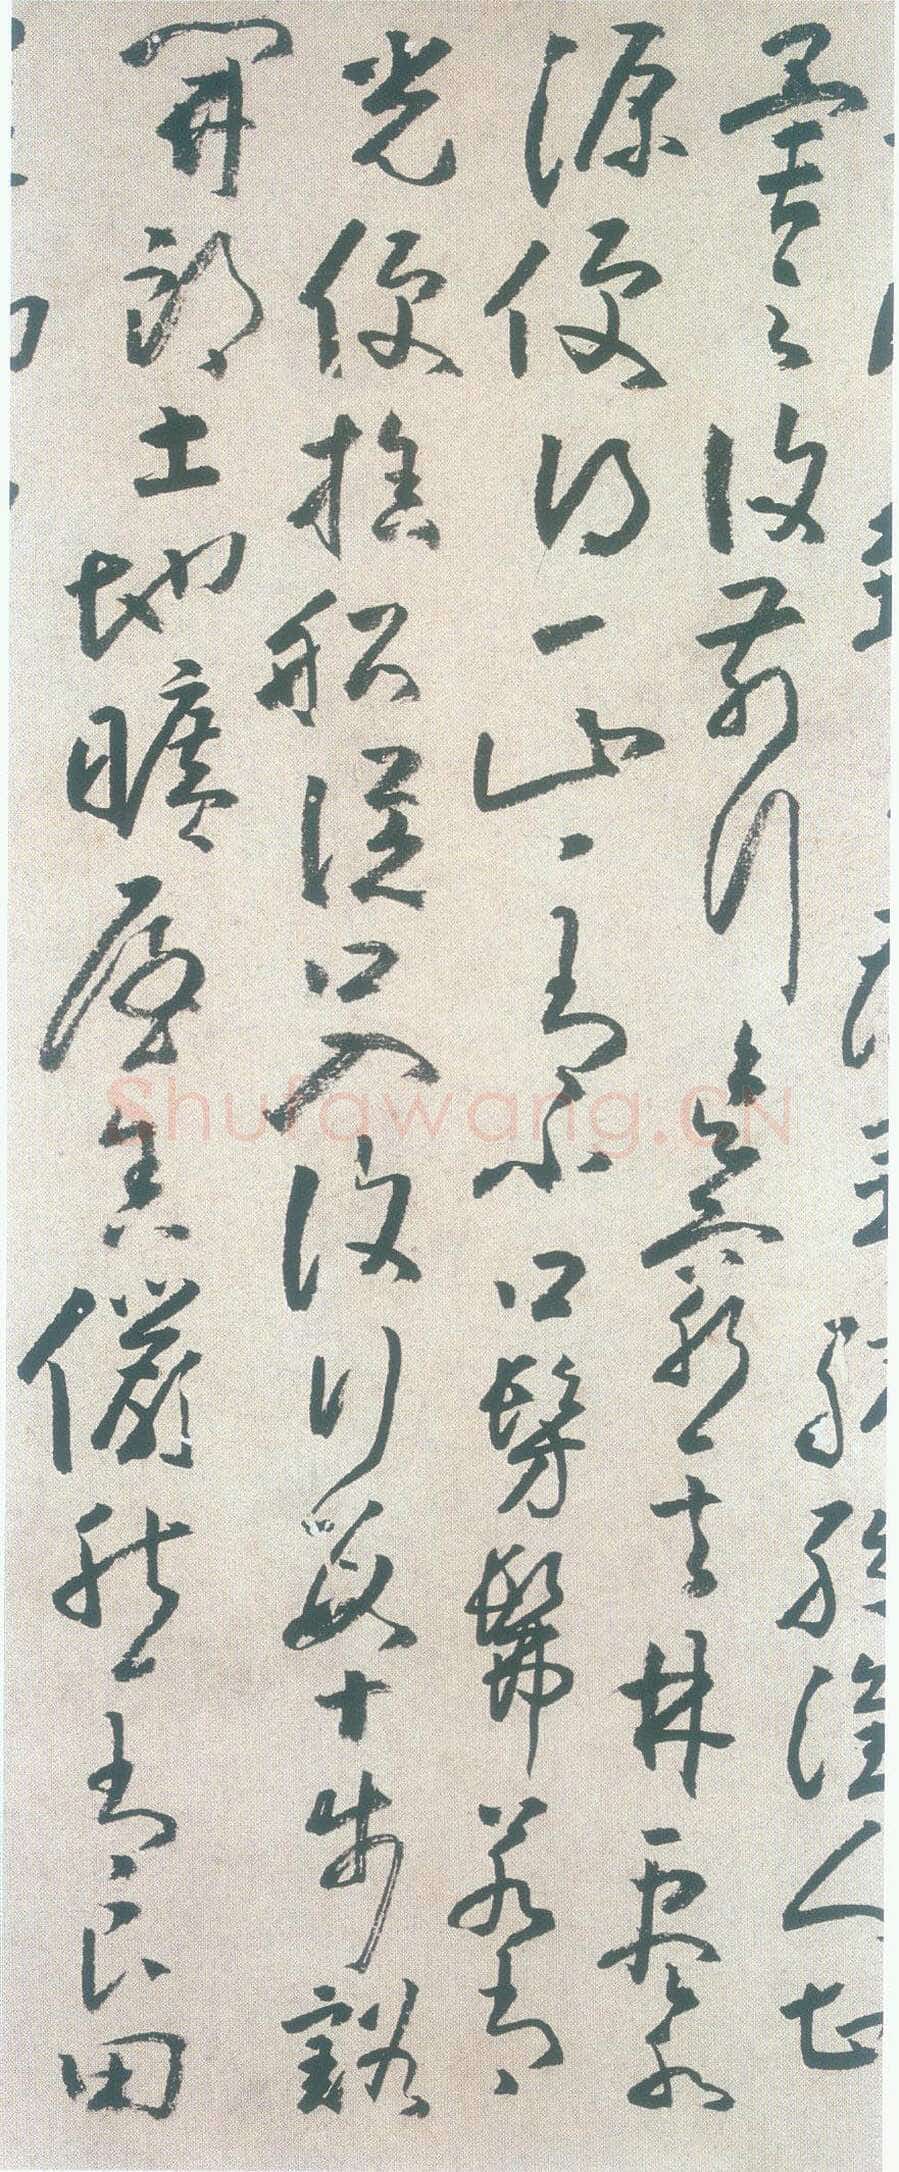 漁人甚
異之復前行欲窮其林盡水
源便得一山山有小口髣髴若有
光便捨船從口入復行數十步豁
開朗土地曠屋舍儼然有良田
Shufawang.CN